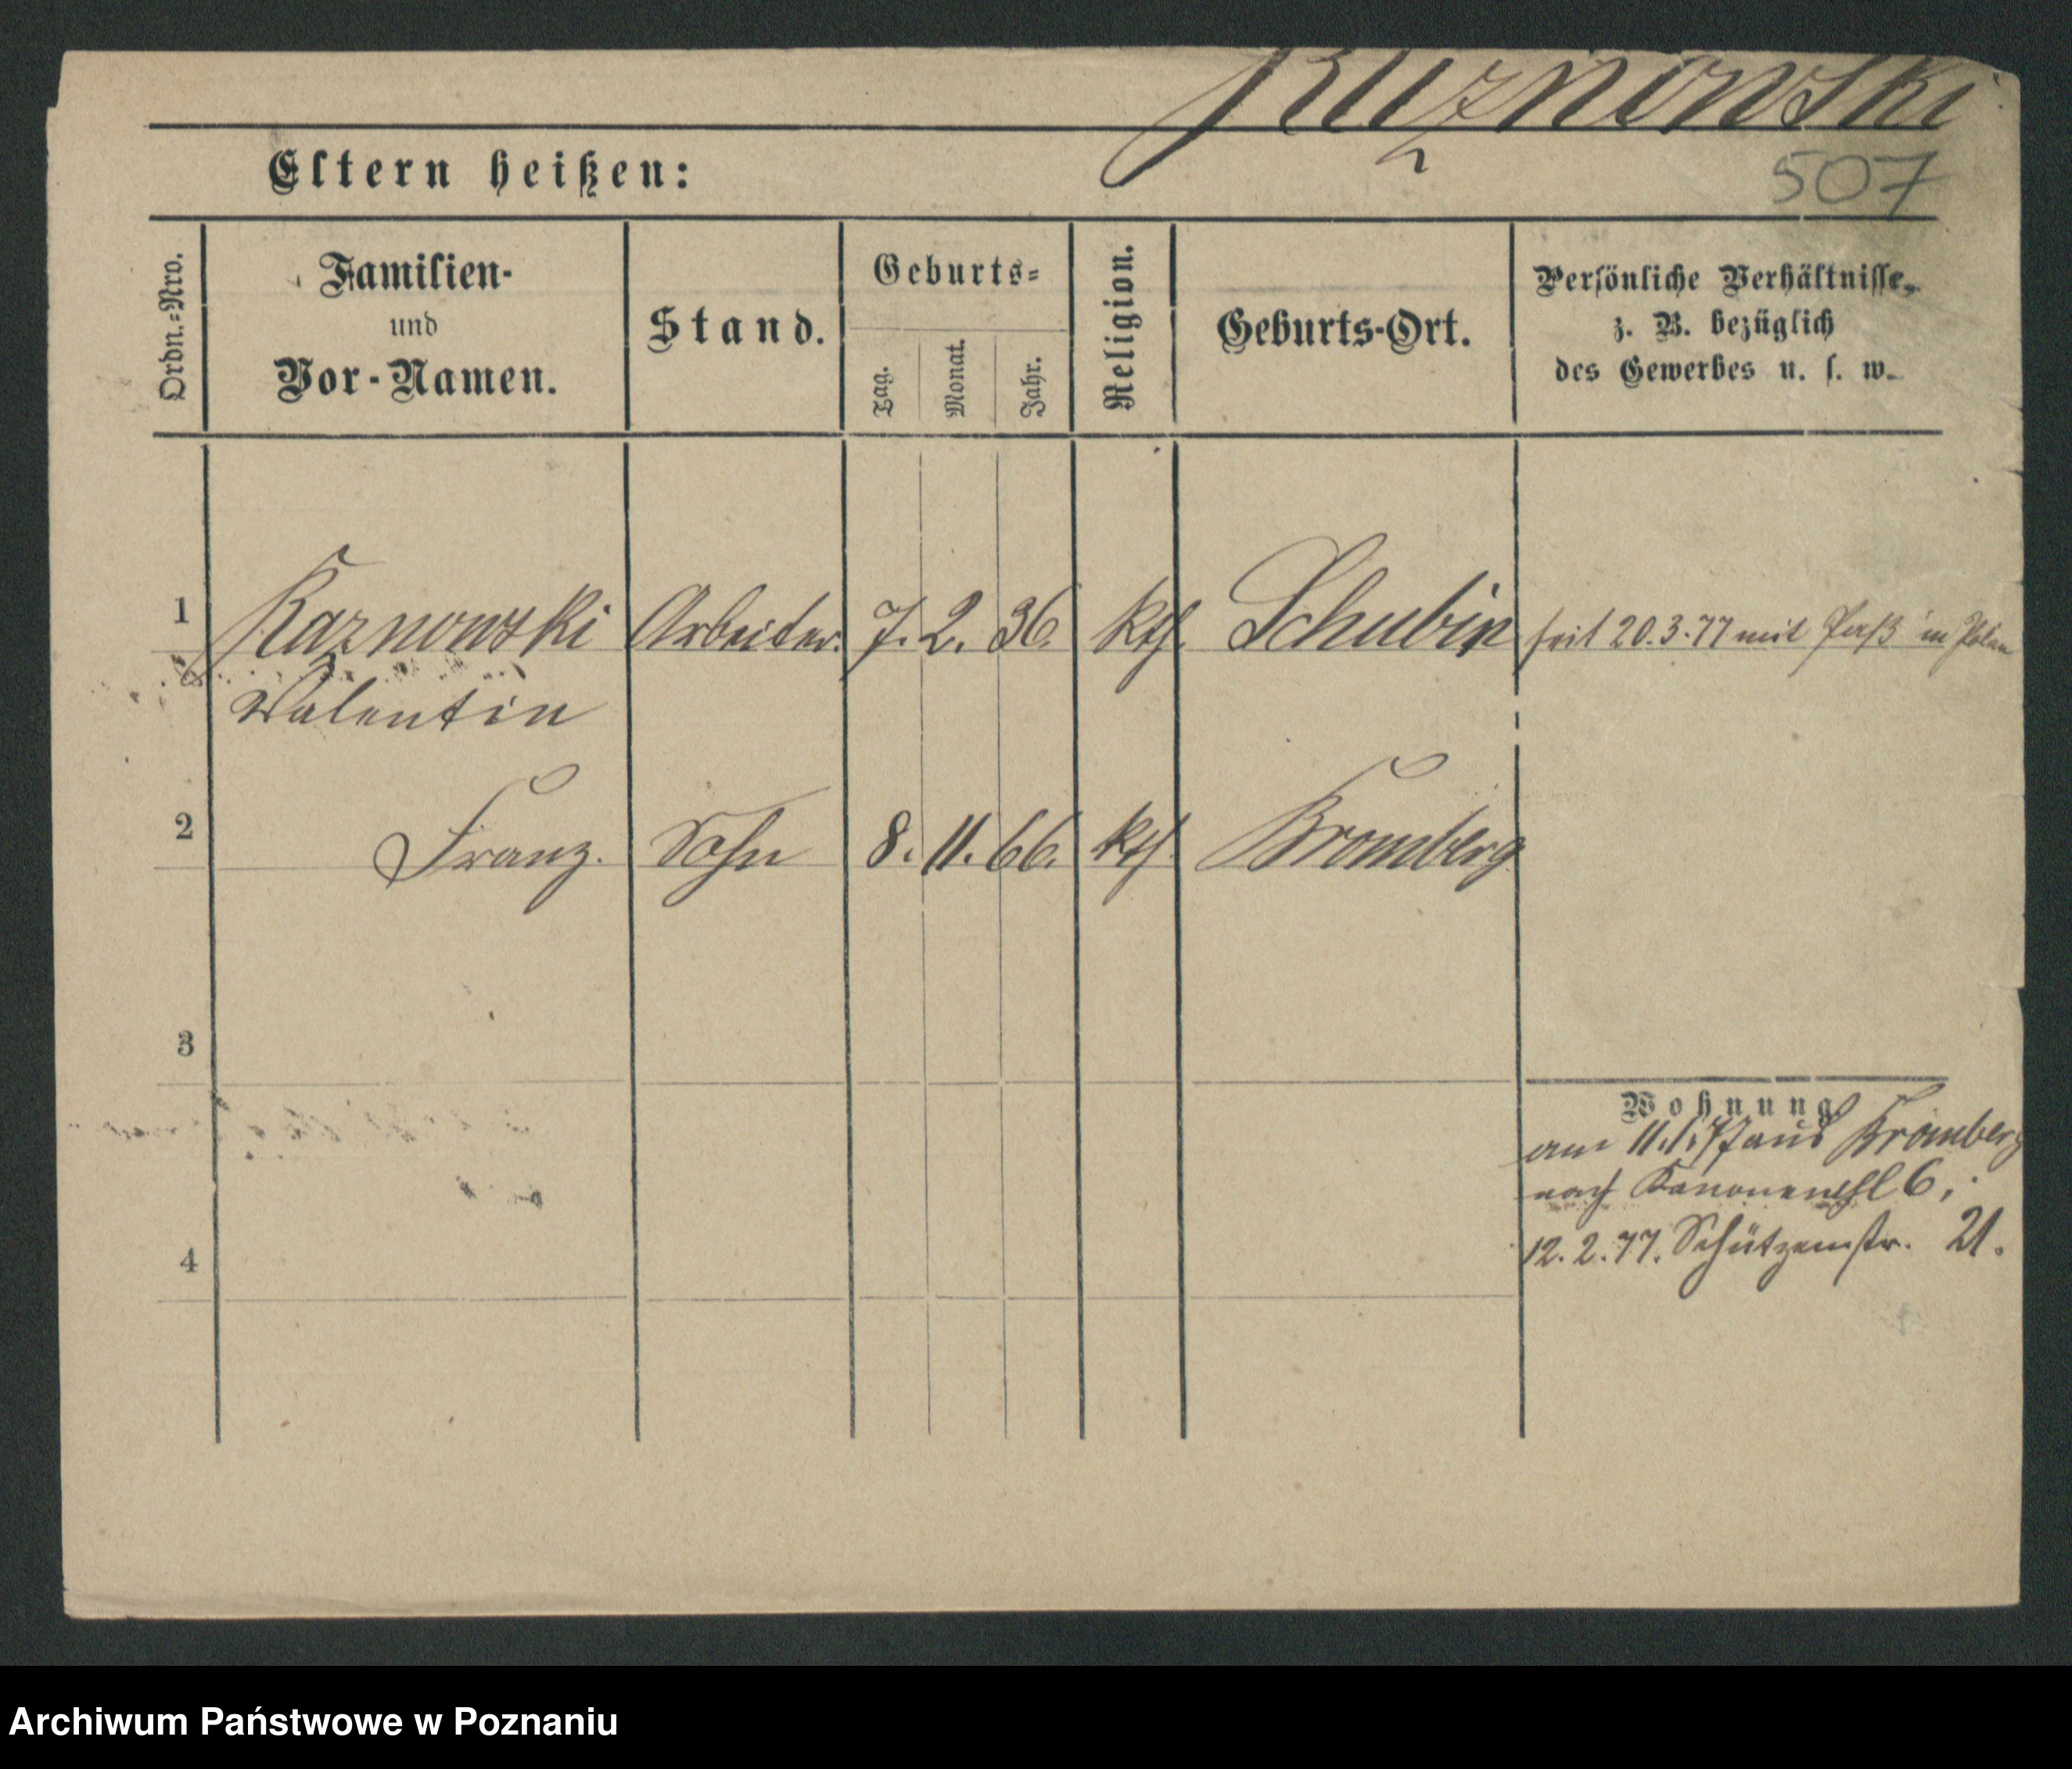 Kaznowski
507
Eltern heißen:
Ordn.-Nro.
Familien-
und
Vor-Namen.
Stand.
Geburts-
Tag.
Monat.
Jahr.
Religion.
Geburts-Ort.
Persönliche Verhältnisse,
z. B. bezüglich
des Gewerbes u. s. w.
1 Kaznowski Arbeiter. 7. 2. 36. kth. Schubin seit 20.3.77 mit Paß in Polen
Valentin
2 Franz. Sohn 8. 11. 66. kth. Bromberg
3
4
Wohnung
am 11.1.77 aus Bromberg
nach 6,
12.2.77. Schützenstr. 21.
Archiwum Państwowe w Poznaniu